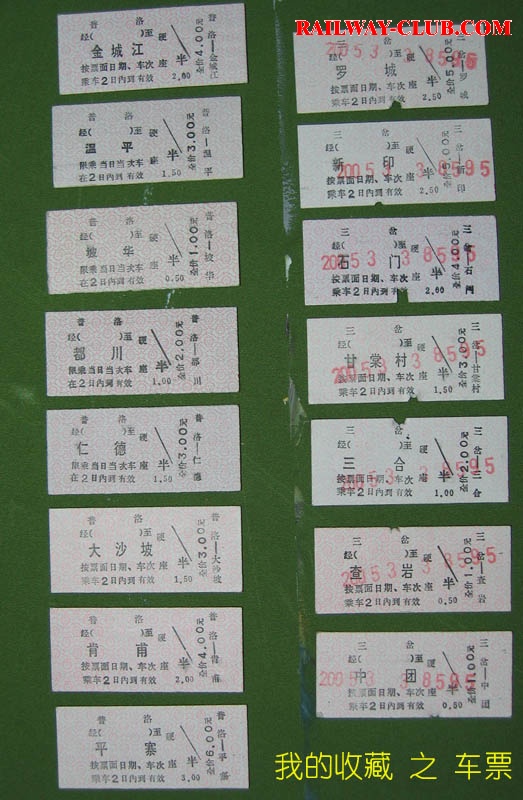 RAILWAY-CLUB.COM
普 洛
经( )至 硬
金城江 半
按票面日期、车次 座
乘车2日内到有效 2.00
全价4.00元
普洛—金城江
普 洛
经( )至 硬
温 平 半
限乘当日当次车 座
在2日内到有效 1.50
全价3.00元
普 洛
经( )至 硬
坡 华 半
限乘当日当次车 座
在2日内到有效 0.50
全价1.00元
普 洛
经( )至 硬
都 川 半
限乘当日当次车 座
在2日内到有效 1.00
全价2.00元
普 洛
经( )至 硬
仁 德 半
限乘当日当次车 座
在2日内到有效 1.50
全价3.00元
普 洛
经( )至 硬
大沙坡 半
按票面日期、车次 座
乘车2日内到有效 1.50
全价3.00元
普洛—大沙坡
普 洛
经( )至 硬
肯 甫 半
按票面日期、车次 座
乘车2日内到有效 2.00
全价4.00元
普洛—肯甫
普 洛
经( )至 硬
平 寨 半
按票面日期、车次 座
乘车2日内到有效 3.00
全价6.00元
普洛—平寨
罗 城 半
按票面日期、车次 座
乘车2日内到有效 2.50
全价5.00元
三 岔
经( )至 硬
新 印 半
按票面日期、车次 座
乘车2日内到有效 2.50
全价5.00元
三 岔
经( )至 硬
石 门 半
按票面日期、车次 座
乘车2日内到有效 2.00
全价4.00元
三 岔
经( )至 硬
甘棠村 半
按票面日期、车次 座
乘车2日内到有效 1.50
全价3.00元
三岔—甘棠村
三 岔
经( )至 硬
三 合 半
按票面日期、车次 座
乘车2日内到有效 1.00
全价2.00元
三岔—三合
三 岔
经( )至 硬
查 岩 半
按票面日期、车次 座
乘车2日内到有效 0.50
全价1.00元
三岔—查岩
三 岔
经( )至 硬
中 团 半
按票面日期、车次 座
乘车2日内到有效 0.50
全价1.00元
三岔—中团
我的收藏 之 车票